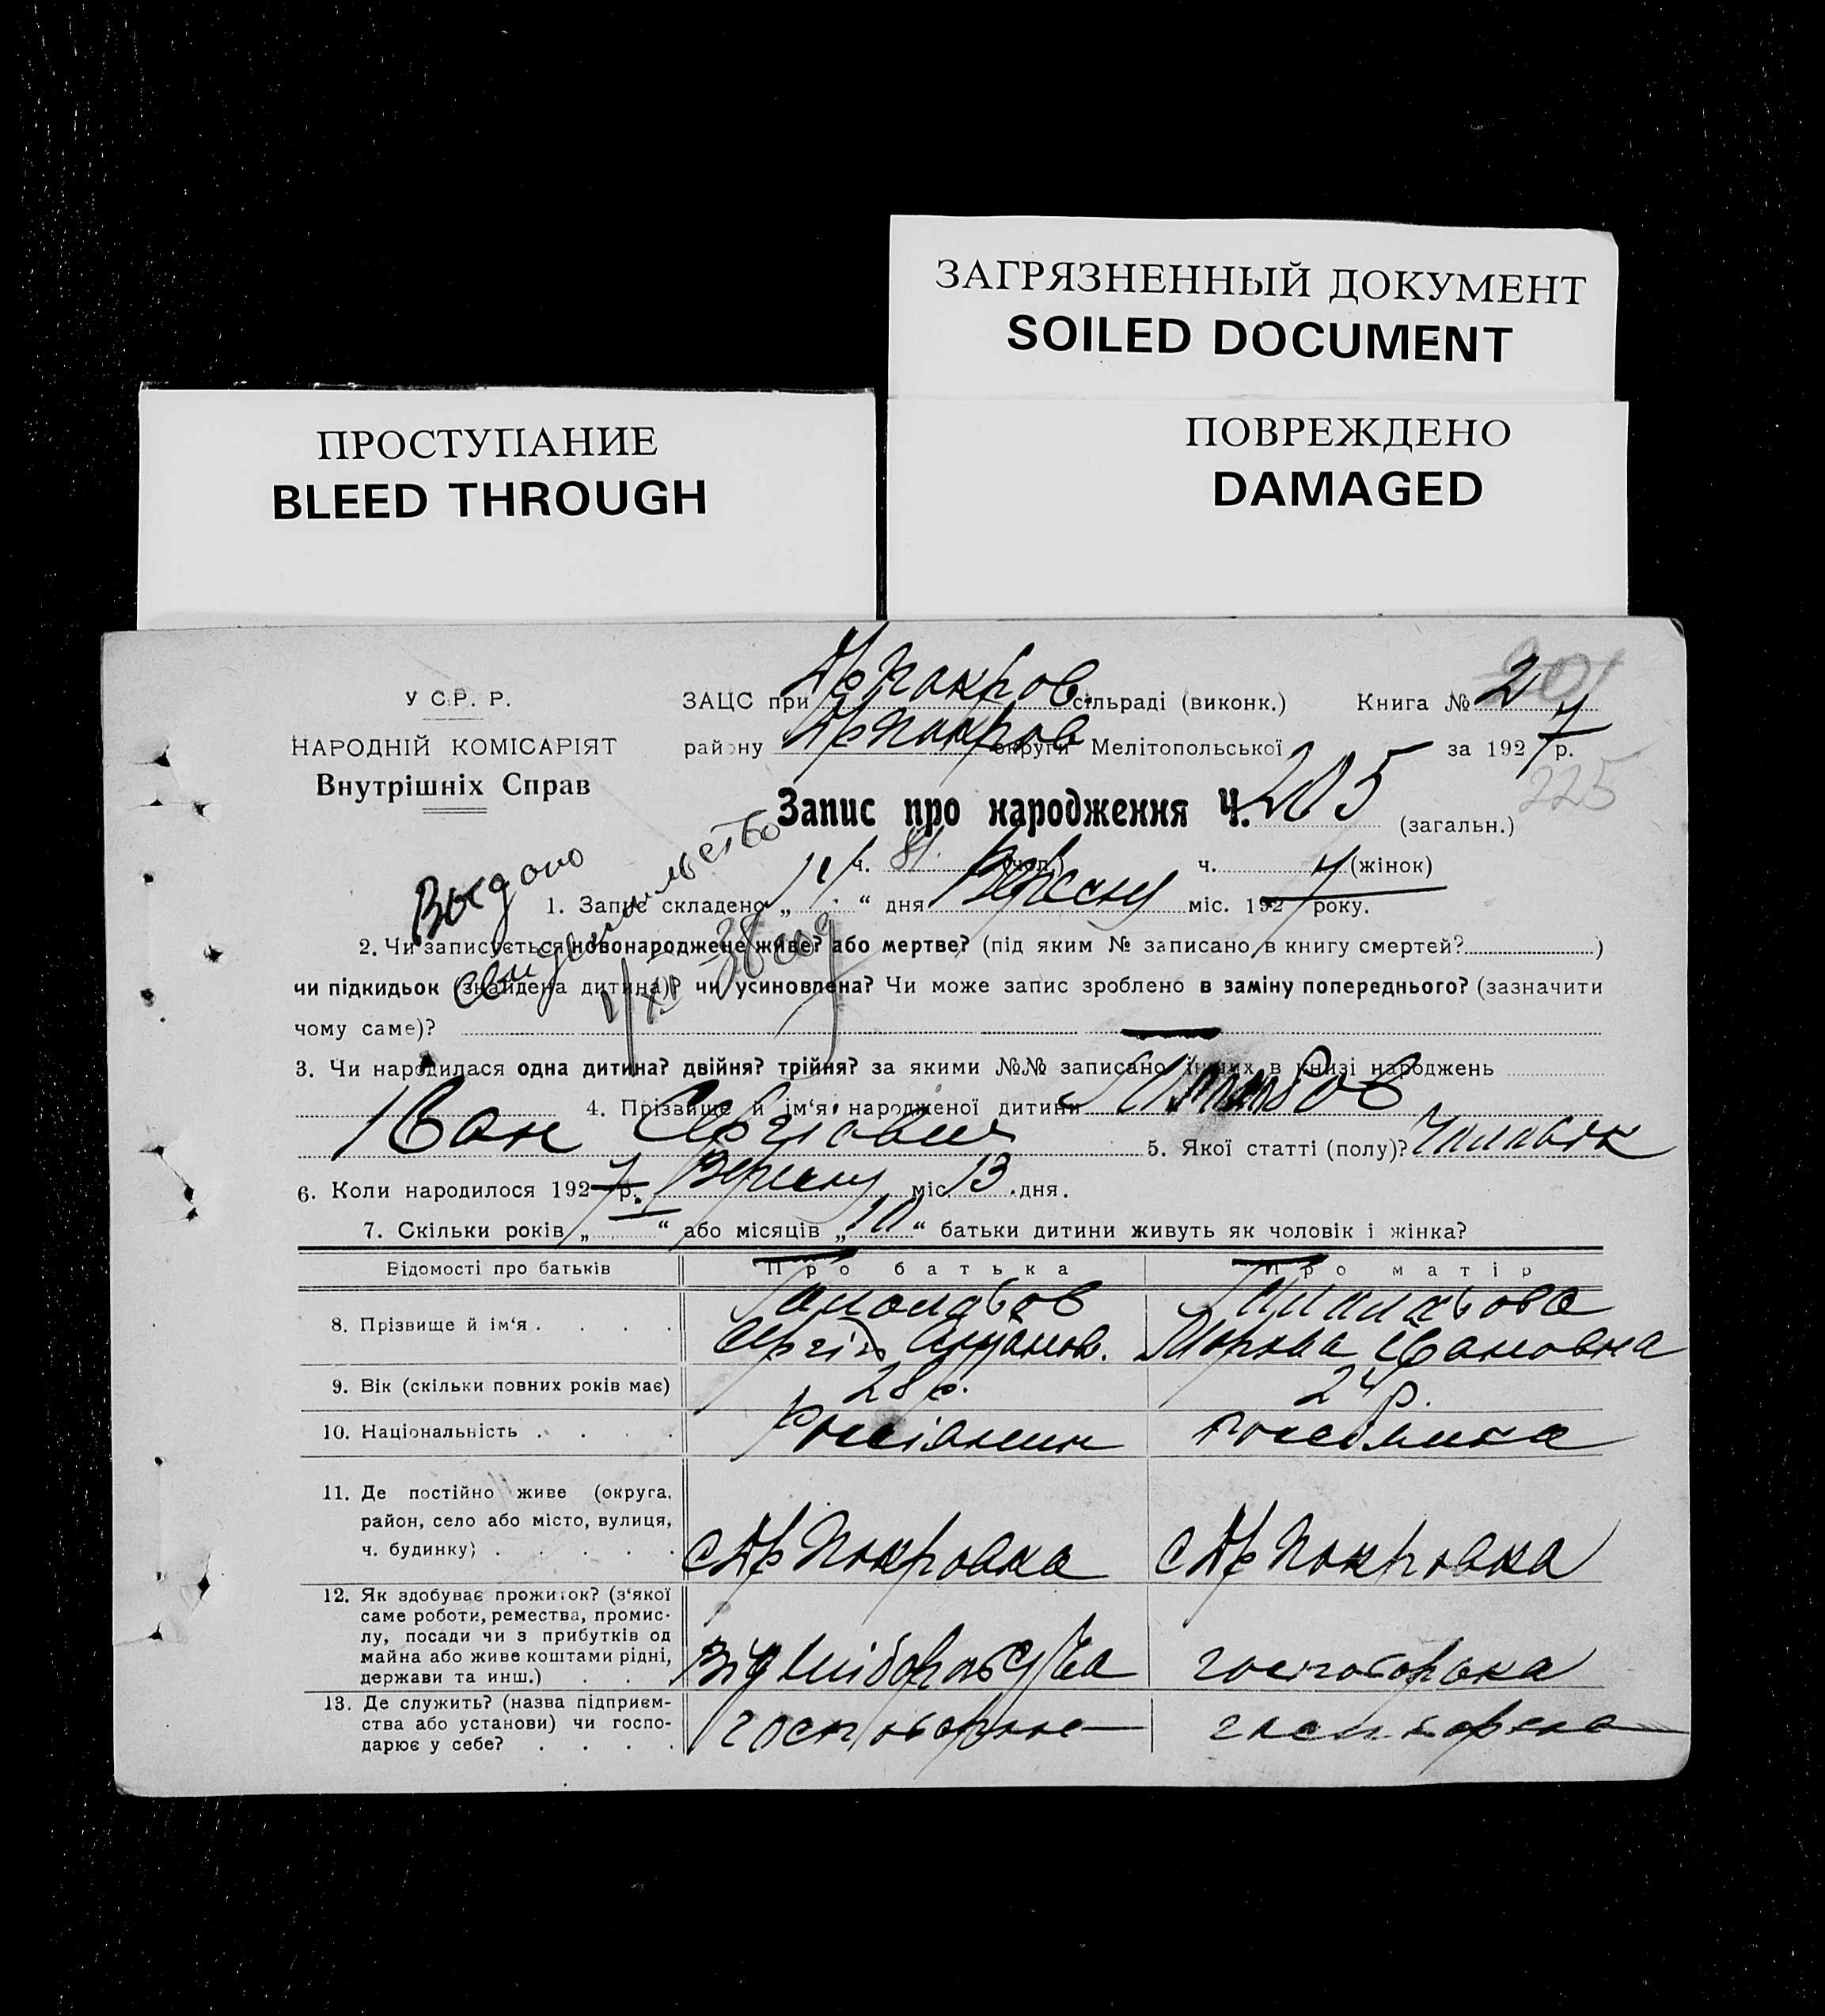 ЗАГРЯЗНЕННЫЙ ДОКУМЕНТ
SOILED DOCUMENT
ПРОСТУПАНИЕ
BLEED THROUGH
ПОВРЕЖДЕНО
DAMAGED
У С.Р. Р.
НАРОДНІЙ КОМІСАРІЯТ
Внутрішніх Справ
ЗАЦС при сільраді (виконк.) Книга № 2
району округи Мелітопольської за 1927 р.
225
Запис про народження Ч. 205 (загальн.)
ч. 81. (чол.) ч. (жінок)
Выдано свидетельство
1. Запис складено „ “ дня Вересня міс. 1927 року.
2. Чи записується новонароджене живе? або мертве? (під яким № записано в книгу смертей? )
чи підкидьок (знайдена дитина)? чи усиновлена? Чи може запис зроблено в заміну попереднього? (зазначити
чому саме)?
3. Чи народилася одна дитина? двійня? трійня? за якими №№ записано інших в книзі народжень
4. Прізвище й ім‘я народженої дитини
Іван Сергіович 5. Якої статті (полу)? Чоловік
6. Коли народилося 1927 р. Вересня міс. 13 дня.
7. Скільки років „ “ або місяців „10“ батьки дитини живуть як чоловік і жінка?
Відомості про батьків Про батька Про матір
8. Прізвище й ім‘я
Сергій Івановна
9. Вік (скільки повних років має) 28 р. 24 р.
10. Національність Россіянин россіянка
11. Де постійно живе (округа,
район, село або місто, вулиця,
ч. будинку) Покровка Покровка
12. Як здобуває прожиток? (з‘якої
саме роботи, ремества, промис-
лу, посади чи з прибутків од
майна або живе коштами рідні,
держави та инш.) Від хліборобства
13. Де служить? (назва підприєм-
ства або установи) чи госпо-
дарює у себе?